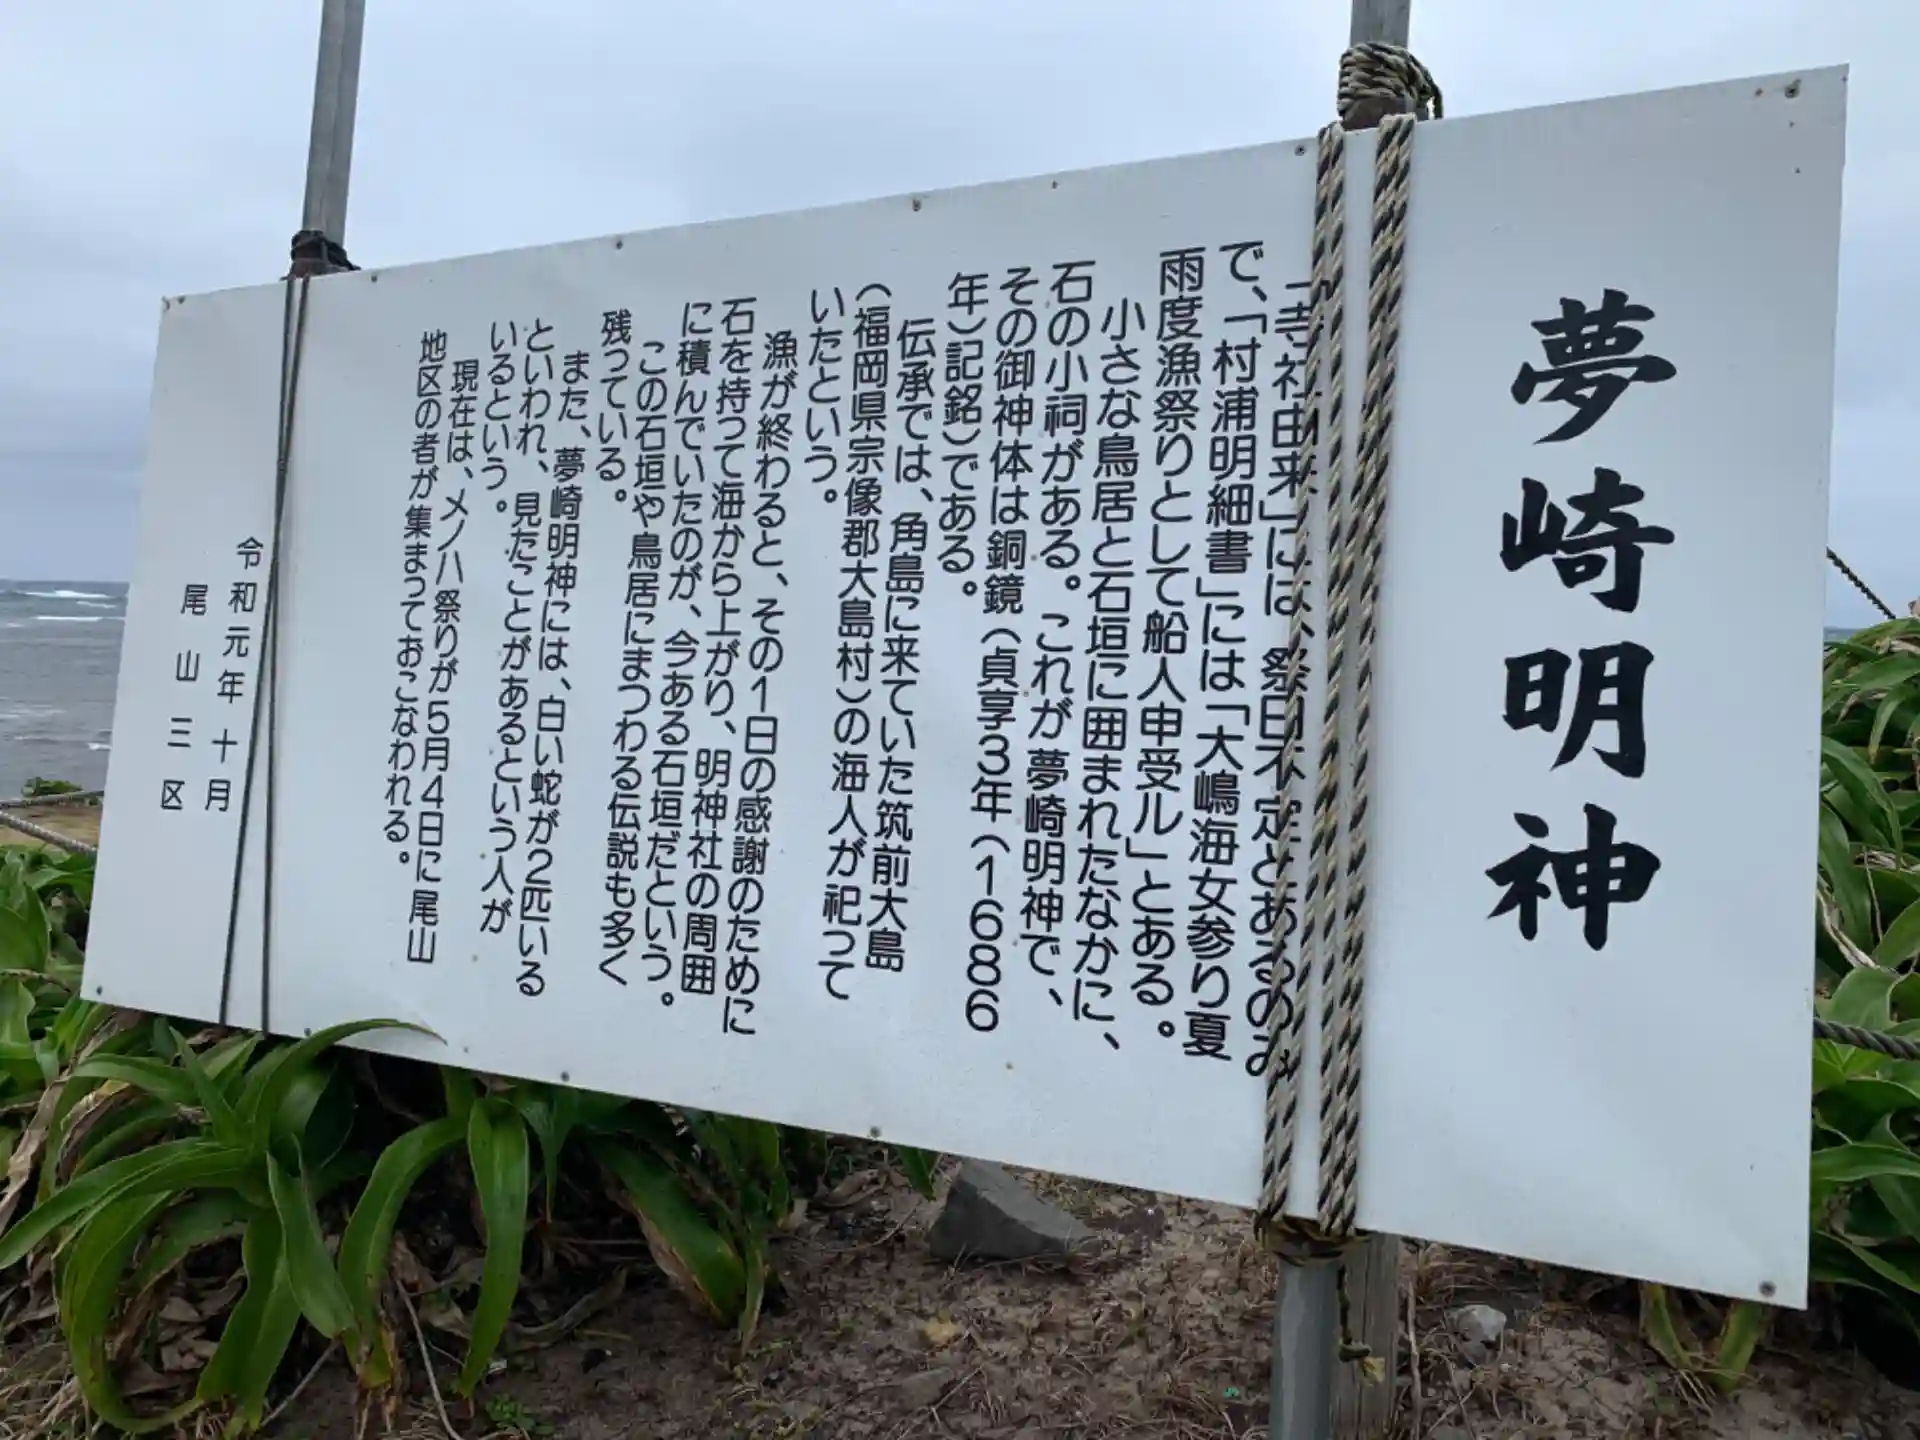 夢崎明神
「寺社由来」には、祭日不定とあるのみ
で、「村浦明細書」には「大嶋海女参り夏
雨度漁祭りとして船人申受ル」とある。
小さな鳥居と石垣に囲まれたなかに、
石の小祠がある。これが夢崎明神で、
その御神体は銅鏡(貞享3年(1686
年)記銘)である。
伝承では、角島に来ていた筑前大島
(福岡県宗像郡大島村)の海人が祀って
いたという。
漁が終わると、その1日の感謝のために
石を持って海から上がり、明神社の周囲
に積んでいたのが、今ある石垣だという。
この石垣や鳥居にまつわる伝説も多く
残っている。
また、夢崎明神には、白い蛇が2匹いる
といわれ、見たことがあるという人が
いるという。
現在は、メノハ祭りが5月4日に尾山
地区の者が集まっておこなわれる。
令和元年十月
尾山三区